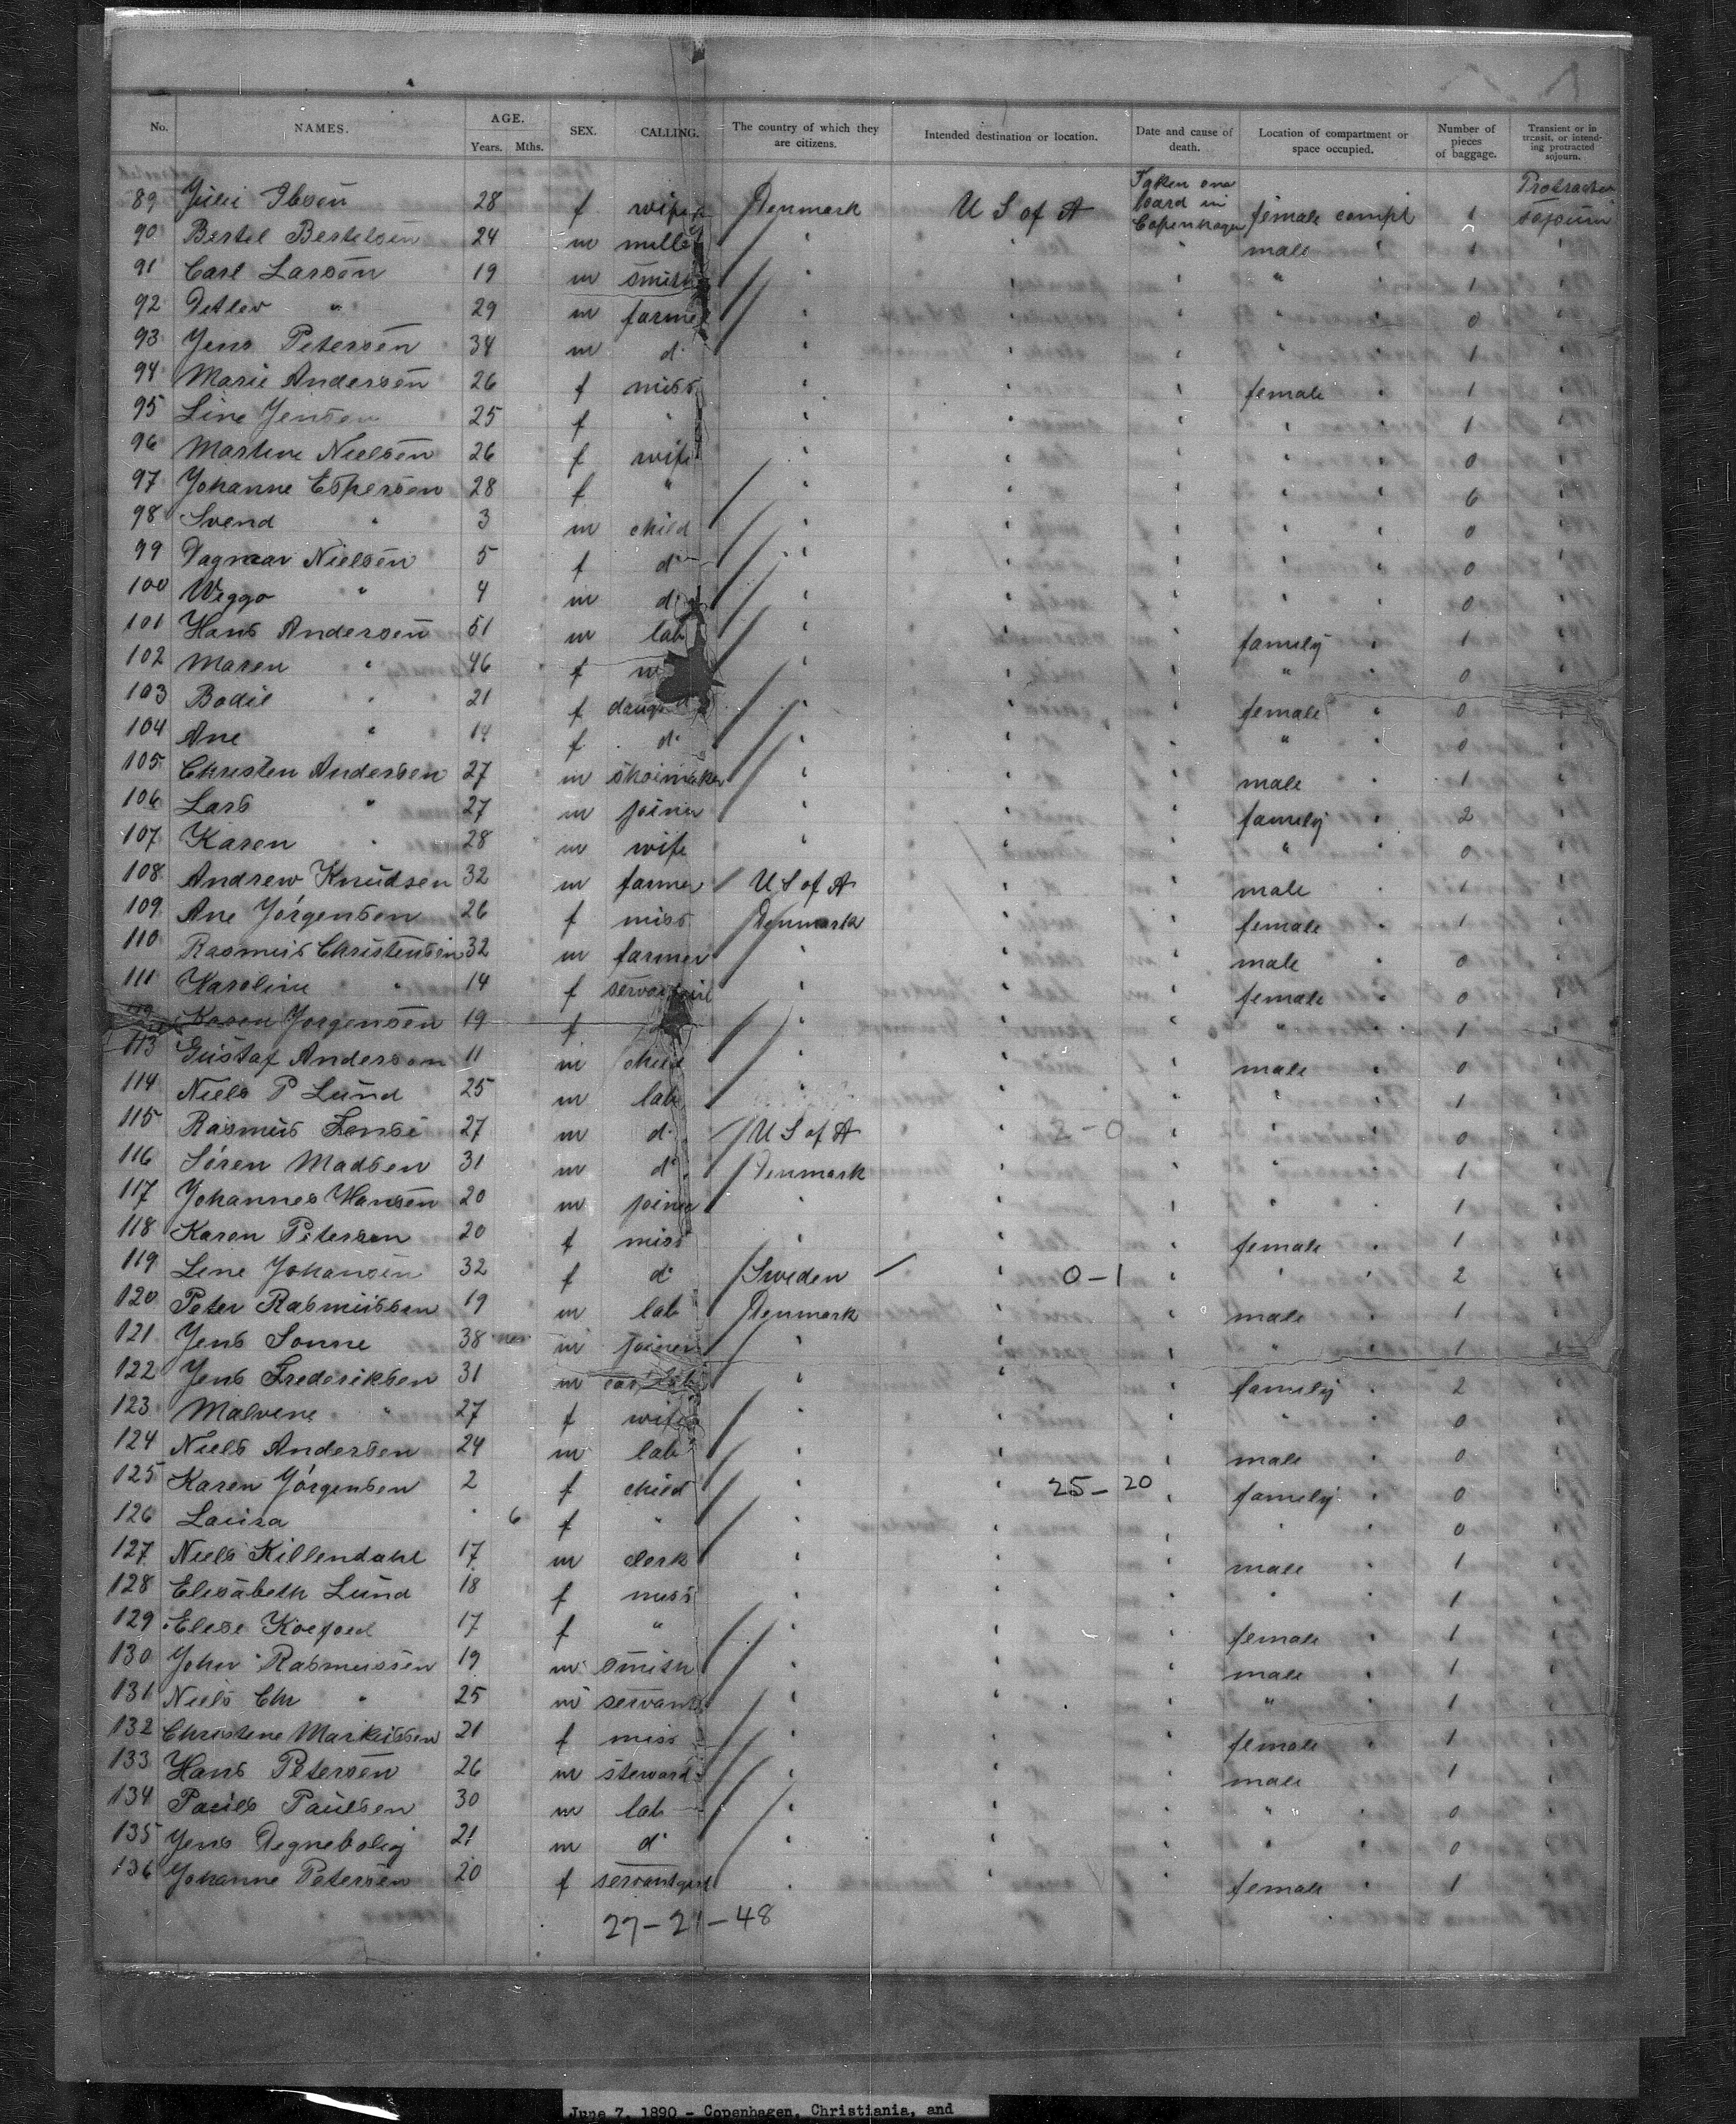 No. NAMES. AGE. Years. Mths. SEX. CALLING. The country of which they are citizens. Intended destination or location. Date and cause of death. Location of compartment or space occupied. Number of pieces of baggage. Transient or in transit, or intending protracted sojourn.
89 Julie Ibsen 28 f wife Denmark U S of A Taken one board in Copenhagen female compt 1 Protracted sojourn
90 Bertel Bertelsen 24 m miller " " " male " 1 "
91 Carl Larsen 19 m smith " " " " " 1 "
92 Detlev " 29 m farmer " " " " " 0 "
93 Jens Petersen 34 m do " " " " " 1 "
94 Marie Andersen 26 f miss " " " female " 1 "
95 Line Jensen 25 f " " " " " " 1 "
96 Martine Nielsen 26 f wife " " " " " 0 "
97 Johanne Espersen 28 f " " " " " " 6 "
98 Svend " 3 m child " " " " " 0 "
99 Dagmar Nielsen 5 f do " " " " " 0 "
100 Weggo " 4 m do " " " " " 0 "
101 Hans Andersen 51 m lab " " " family " 1 "
102 Maren " 46 f " " " " " 0 "
103 Bodil " 21 f " " " female " 0 "
104 Ane " 14 f do " " " " " 0 "
105 Christen Andersen 27 m shoimaker " " " male " 1 "
106 Lars " 27 m joiner " " " family " 2 "
107 Karen " 28 m wife " " " " " 0 "
108 Andrew Knudsen 32 m farmer U S of A " " male " 1 "
109 Ane Jörgensen 26 f miss Denmark " " female " 1 "
110 Rasmus Christensen 32 m farmer " " " male " 0 "
111 Karoline " 14 f servantgirl " " " female " 0 "
Karen Jorgensen 19 f " " " " " 1 "
113 Gustaf Anderson 11 m child " " " male " 0 "
114 Niels P Lund 25 m lab " " " " " 1 "
115 Rasmus 27 m do U S of A " 2-0 " " " 0 "
116 Sören Madsen 31 m do Denmark " " " " 1 "
117 Johannes Hansen 20 m joiner " " " " " 1 "
118 Karen Petersen 20 f miss " " " female " 1 "
119 Line Johansen 32 f do Sweden " 0-1 " " " 2 "
120 Peter Rasmussen 19 m lab Denmark " " male " 1 "
121 Jens Sonne 38 m joiner " " " " " 1 "
122 Jens Frederiksen 31 m " " " family " 2 "
123 Malvine " 27 f wife " " " " " 0 "
124 Niels Andersen 24 m lab " " " male " 0 "
125 Karen Jörgensen 2 f child " " 25-20 " family " 0 "
126 Laura " 6 f " " " " " " 0 "
127 Niels Killendahl 17 m clerk " " " male " 1 "
128 Elisabeth Lund 18 f miss " " " " " 1 "
129 Elise Koefoed 17 f " " " " female " 1 "
130 John Rasmussen 19 m smith " " " male " 1 "
131 Niels Chr " 25 m servant " " " " " 1 "
132 Christene Markussen 21 f miss " " " female " 1 "
133 Hans Petersen 26 m steward " " " male " 1 "
134 Poul Paulsen 30 m lab " " " " " 0 "
135 Jens Degnebolig 21 m do " " " " " 0 "
136 Johanne Petersen 20 f servantgirl " " " female " 1 "
27-21-48
June 7, 1890 - Copenhagen, Christiania, and